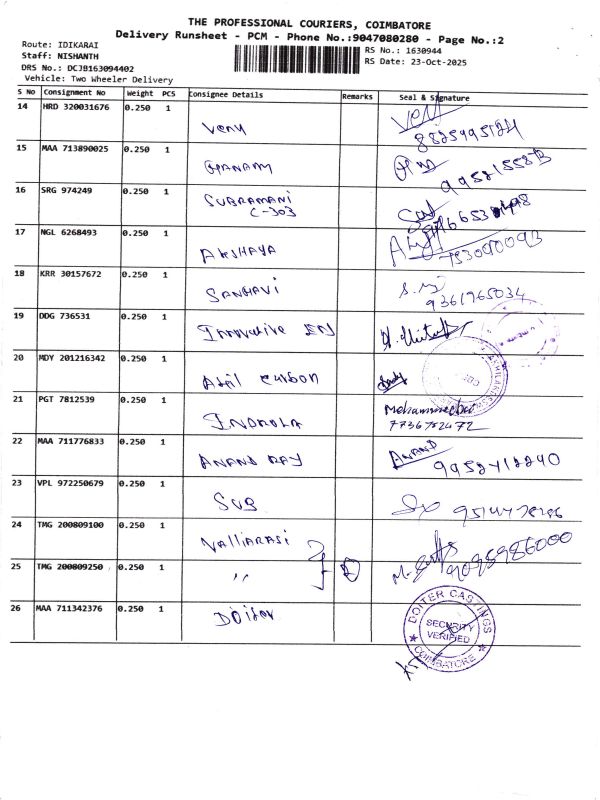 THE PROFESSIONAL COURIERS, COIMBATORE
Delivery Runsheet - PCM - Phone No.:9047080280 - Page No.:2
Route: IDIKARAI
Staff: NISHANTH
DRS No.: DCJB163094402
Vehicle: Two Wheeler Delivery
RS No.: 1630944
RS Date: 23-Oct-2025
S No Consignment No Weight PCS Consignee Details Remarks Seal & Signature
14 HRD 320031676 0.250 1
15 MAA 713890025 0.250 1
16 SRG 974249 0.250 1 SUBRAMANI
C-303
17 NGL 6268493 0.250 1 AKSHAYA
18 KRR 30157672 0.250 1 SANHAVI
9361765034
19 DDG 736531 0.250 1 Innovative
20 MDY 201216342 0.250 1
21 PGT 7812539 0.250 1
7736752472
22 MAA 711776833 0.250 1 ANAND RAJ ANAND
9952412240
23 VPL 972250679 0.250 1 SUB
24 TMG 200809100 0.250 1 Valliarasi
25 TMG 200809250 0.250 1 〃
9095986000
26 MAA 711342376 0.250 1
DOITER CASTINGS
SECURITY
VERIFIED
COIMBATORE